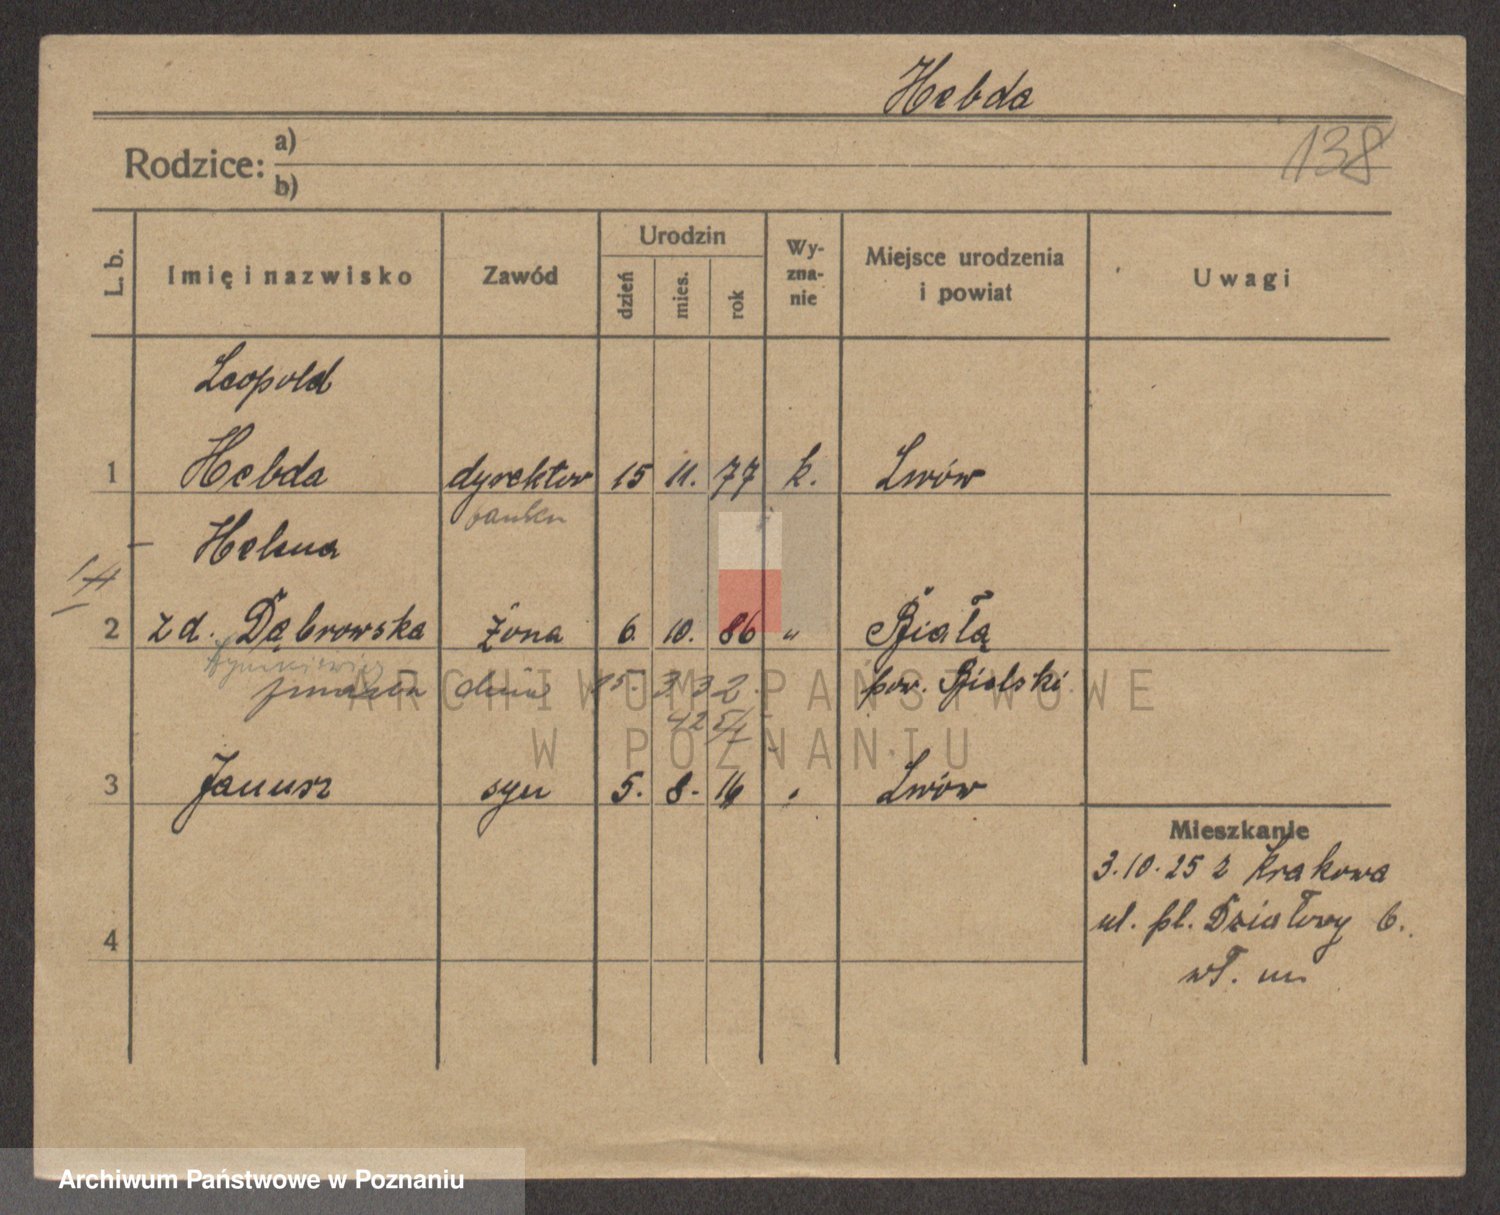 Hebda
138
Rodzice: a)
b)
L. b.
Imię i nazwisko
Zawód
Urodzin
dzień
mies.
rok
Wy-
zna-
nie
Miejsce urodzenia
i powiat
Uwagi
Leopold
1 Hebda dyrektor 15 11. 77 k. Lwów
banku
Helena
2 z d. Dąbrowska żona 6. 10. 86 " Biała
15. 3 32. pow. Bielski
ARCHIWUM PAŃSTWOWE
W POZNANIU
3 Janusz syn 5. 8. 16 " Lwów
Mieszkanie
3.10.25 z Krakowa
ul. pl. Działowy 6.
4
wł. m
Archiwum Państwowe w Poznaniu